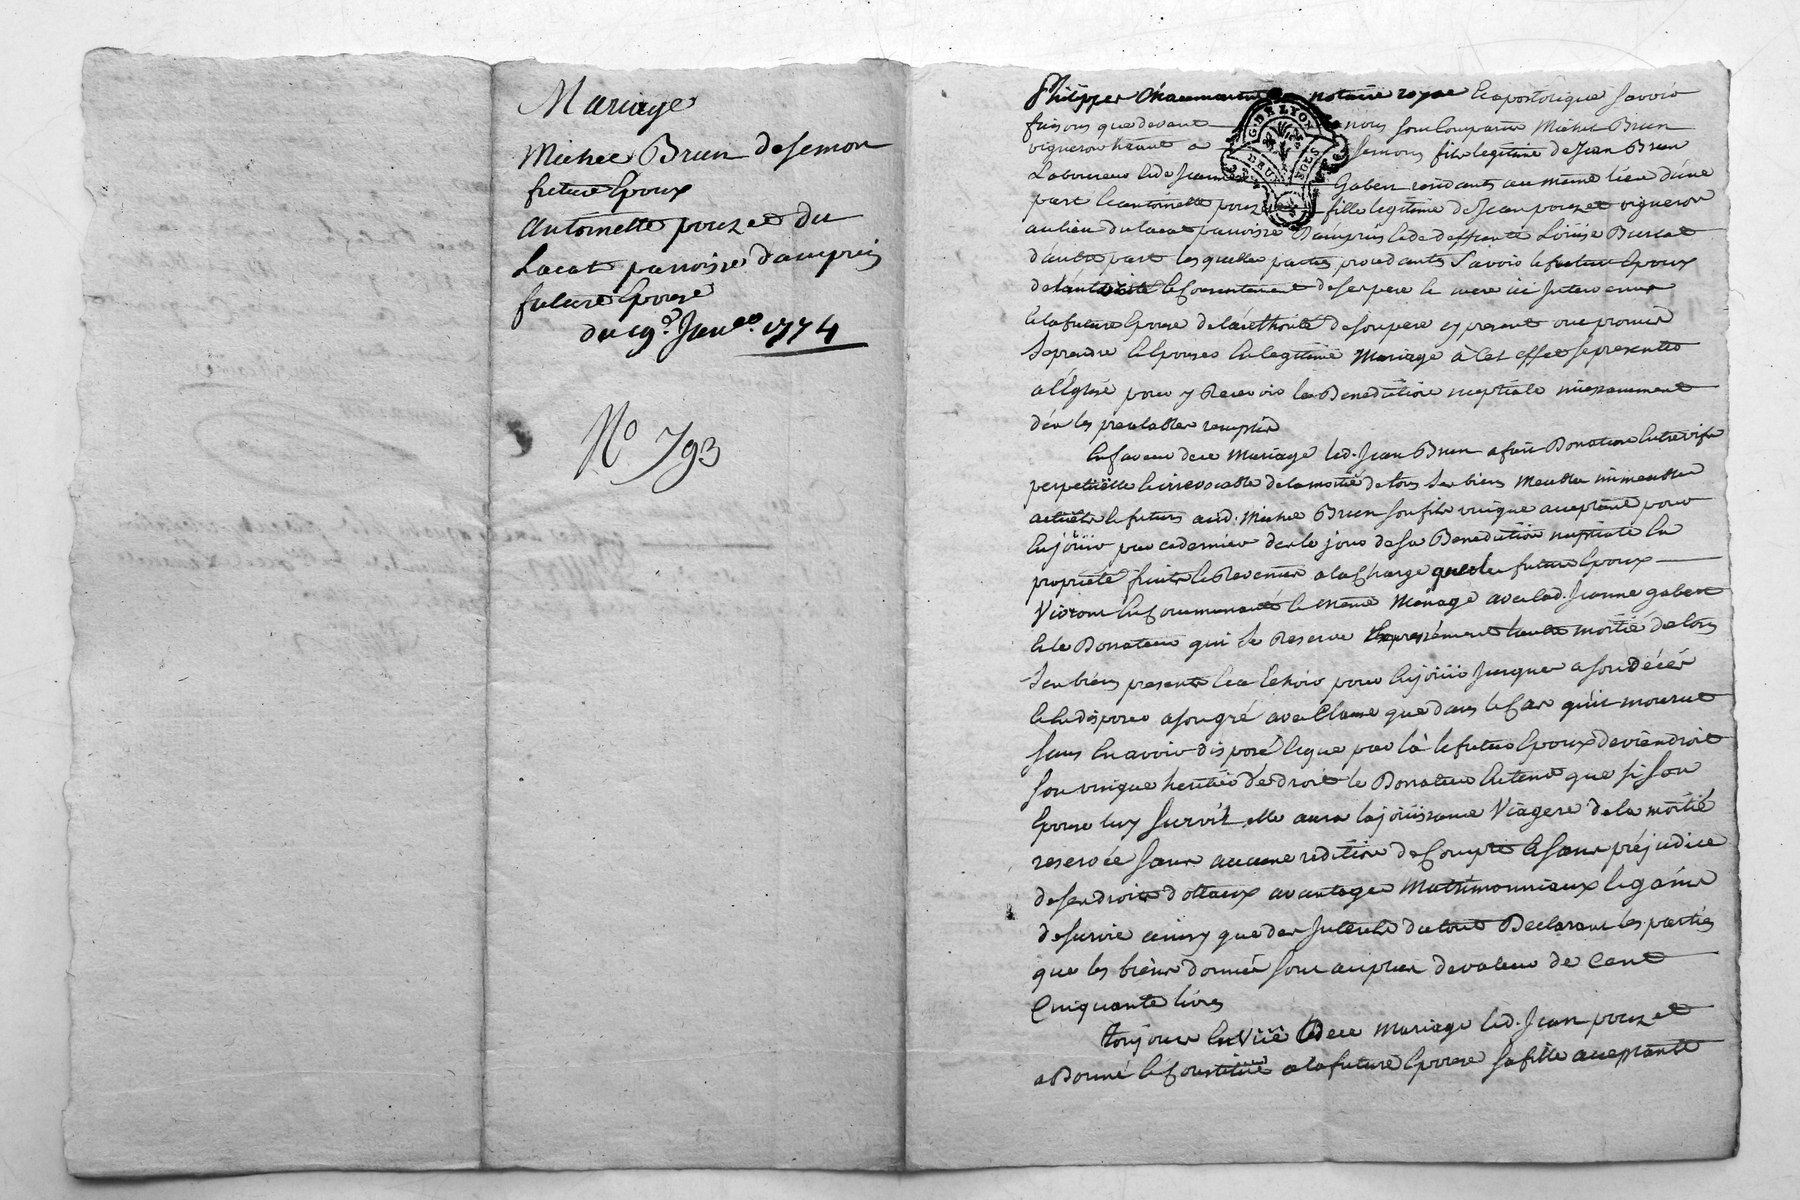 Mariage
Michel Brun de semon
futur Epoux
Antoinette pouzet du
Lacat parroisse dampuis
future Epouse
du 19e. Janer. 1774
No 793
Philippes Chaumartin notaire royal & apostolique Savoir
faisons que devant nous sont Comparus Michel Brun
vigneron hant a Semons fils legitime de Jean Brun
Laboureur & de Jeanne Gabert residants au même lieu d'une
part & antoinette pouzet fille legitime de Jean pouzet vigneron
au lieu du lacat parroisse Dampuis & de deffunte Loüise Burlat
d'autre part lesquelles parties procedantes Savoir le futur Epoux
de l'autorité & Consentement de ses pere & mere ici Intervenus
& la future Epouse de l'authorité de son pere cy present ont promis
Se prendre & Epouser En legitime Mariage à Cet effet Se presenter
a l'Eglise pour y Recevoir la Benediction nuptiale
dès les prealables remplis
En faveur de ce Mariage led. Jean Brun a fait Donation Entrevifs
perpetuëlle & irrevocable de la moitié de tous Ses biens Meubles immeubles
actuëls & futurs aud. Michel Brun Son fils unique acceptant pour
En joüir par ce dernier dès le jour de sa Benediction nuptiale En
propriété fruits & Revenus a la Charge que les futurs Epoux
Vivront En Communauté & même Ménage avec lad. Jeanne gabert
& le Donateur qui Se Reserve Expressément l'autre moitié de tous
Ses biens presents & a Echoir pour En joüir Jusques a son décès
& En disposer a son gré avec Clause que dans le Cas qu'il mourut
Sans En avoir disposé & que par là le futur Epoux deviendroit
Son unique heritier de droit le Donateur Entend que si Son
Epouse luy Survit elle aura la joüissance Viagere de la moitié
reservée Sans aucune redition de Compte & Sans préjudice
de ses droits dottaux avantages Matrimonniaux & gains
de survie ainsy que des Interets du tout Declarant les parties
que les biens donnés sont au plus de valeur de Cent
Cinquante livres
toujours En Vüe de ce Mariage led. Jean pouzet
a Donné & Constitué a la future Epouse Sa fille acceptante
G. DE LYON
DEUX SOLS